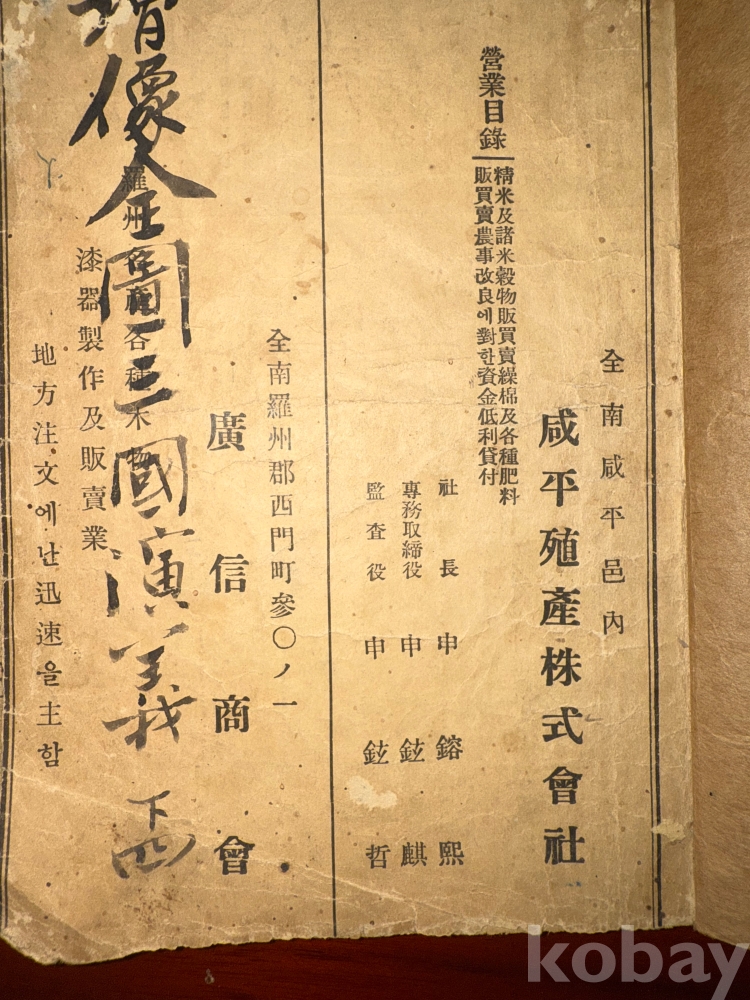 全南咸平邑內
咸平殖產株式會社
營業目錄
精米及諸米穀物販買賣繰棉及各種肥料
販買賣農事改良에對한資金低利貸付
社長 申鎔熙
專務取締役 申鉉麒
監査役 申鉉哲
全南羅州郡西門町參〇ノ一
廣信商會
羅州 各種木物
漆器製作及販賣業
地方注文에난迅速을主함
增像全圖三國演義 下四
kobay